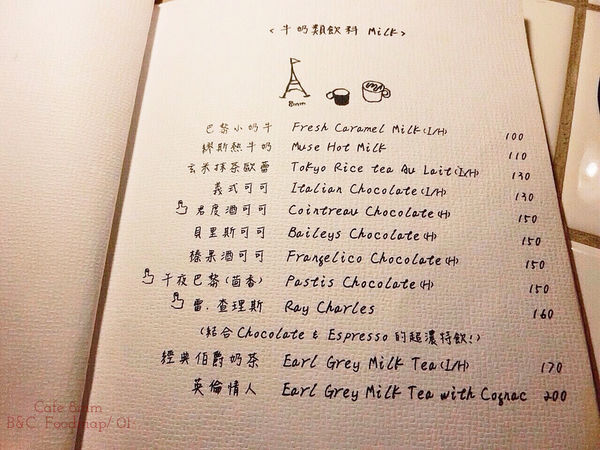 <牛奶類飲料 Milk>
8mm
巴黎小奶牛 Fresh Caramel Milk (I/H) 100
繆斯熱牛奶 Muse Hot Milk 110
玄米抹茶歐蕾 Tokyo Rice tea Au Lait (I/H) 130
義式可可 Italian Chocolate (I/H) 130
君度酒可可 Cointreau Chocolate (H) 150
貝里斯可可 Baileys Chocolate (H) 150
榛果酒可可 Frangelico Chocolate (H) 150
午夜巴黎(茴香) Pastis Chocolate (H) 150
雷.查理斯 Ray Charles 160
(結合 Chocolate & Espresso 的超濃特飲!)
經典伯爵奶茶 Earl Grey Milk Tea (I/H) 170
英倫情人 Earl Grey Milk Tea with Cognac 200
Cafe 8mm
B&C. Foodmap/ 01